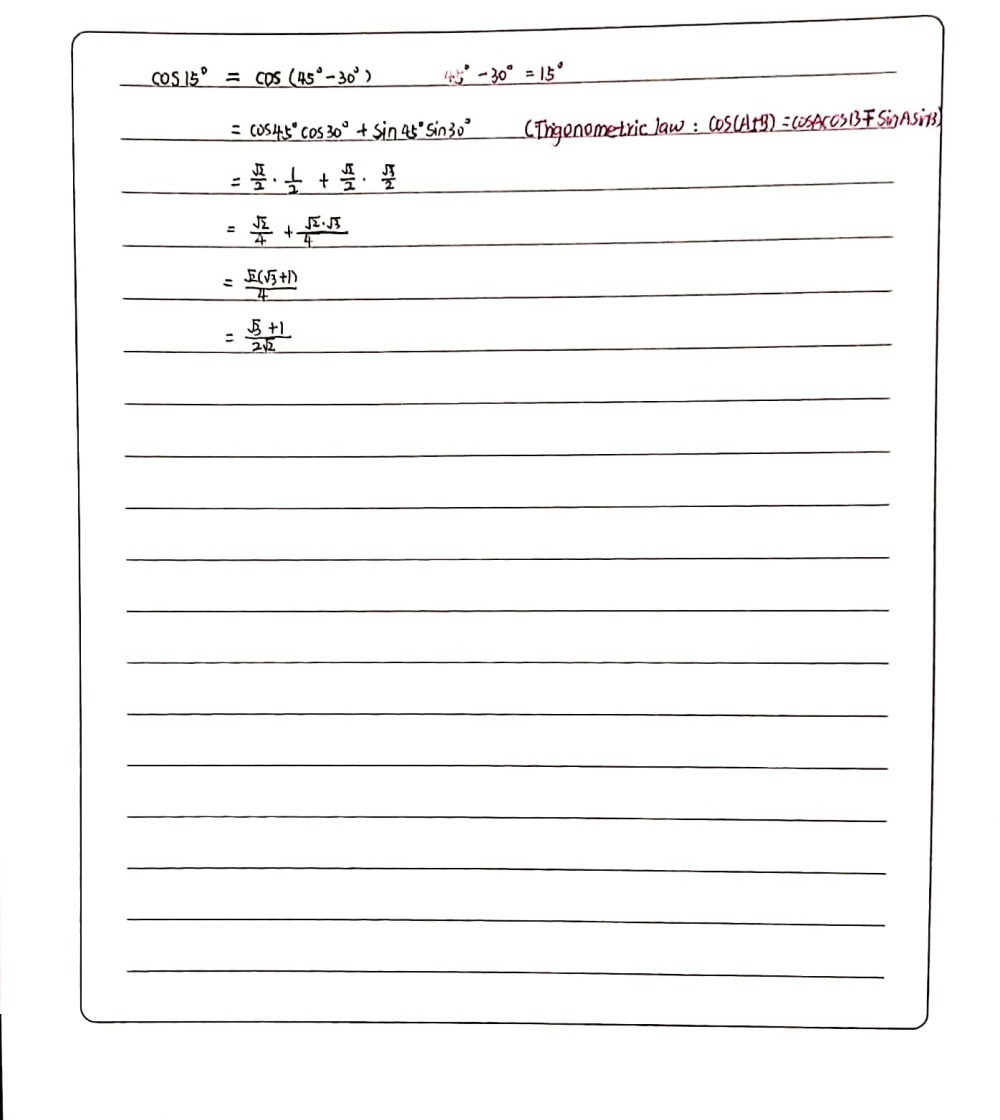 cos 15° = cos (45° - 30°) 45° - 30° = 15°
= cos 45° cos 30° + sin 45° sin 30° (Trigonometric law : cos(A±B) = cosAcosB∓sinAsinB)
= √2/2 · 1/2 + √2/2 · √3/2
= √2/4 + √2·√3/4
= √2(√3+1)/4
= √3+1/2√2